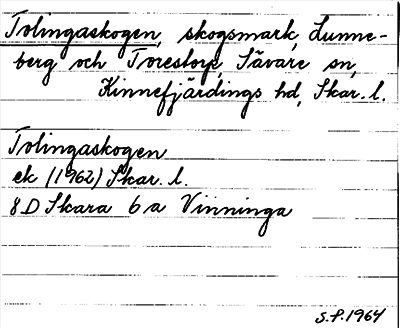 Tolingaskogen, skogsmark, Lunne-
berg och Torestorp, Sävare sn,
Kinnefjärdings hd, Skar. l.
Tolingaskogen
ek (1962) Skar. l.
8D Skara 6a Vinninga
S.P. 1964